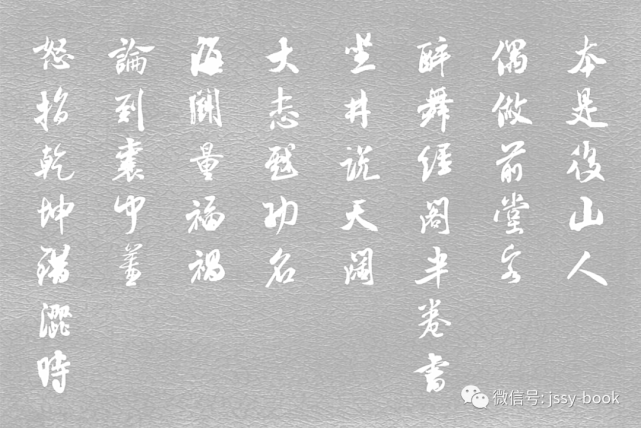 本是後山人
偶做前堂客
醉舞經閣半卷書
坐井說天闊
大志戲功名
海鬥量福禍
論到囊中羞
怒指乾坤錯澀時
微信号: jssy-book